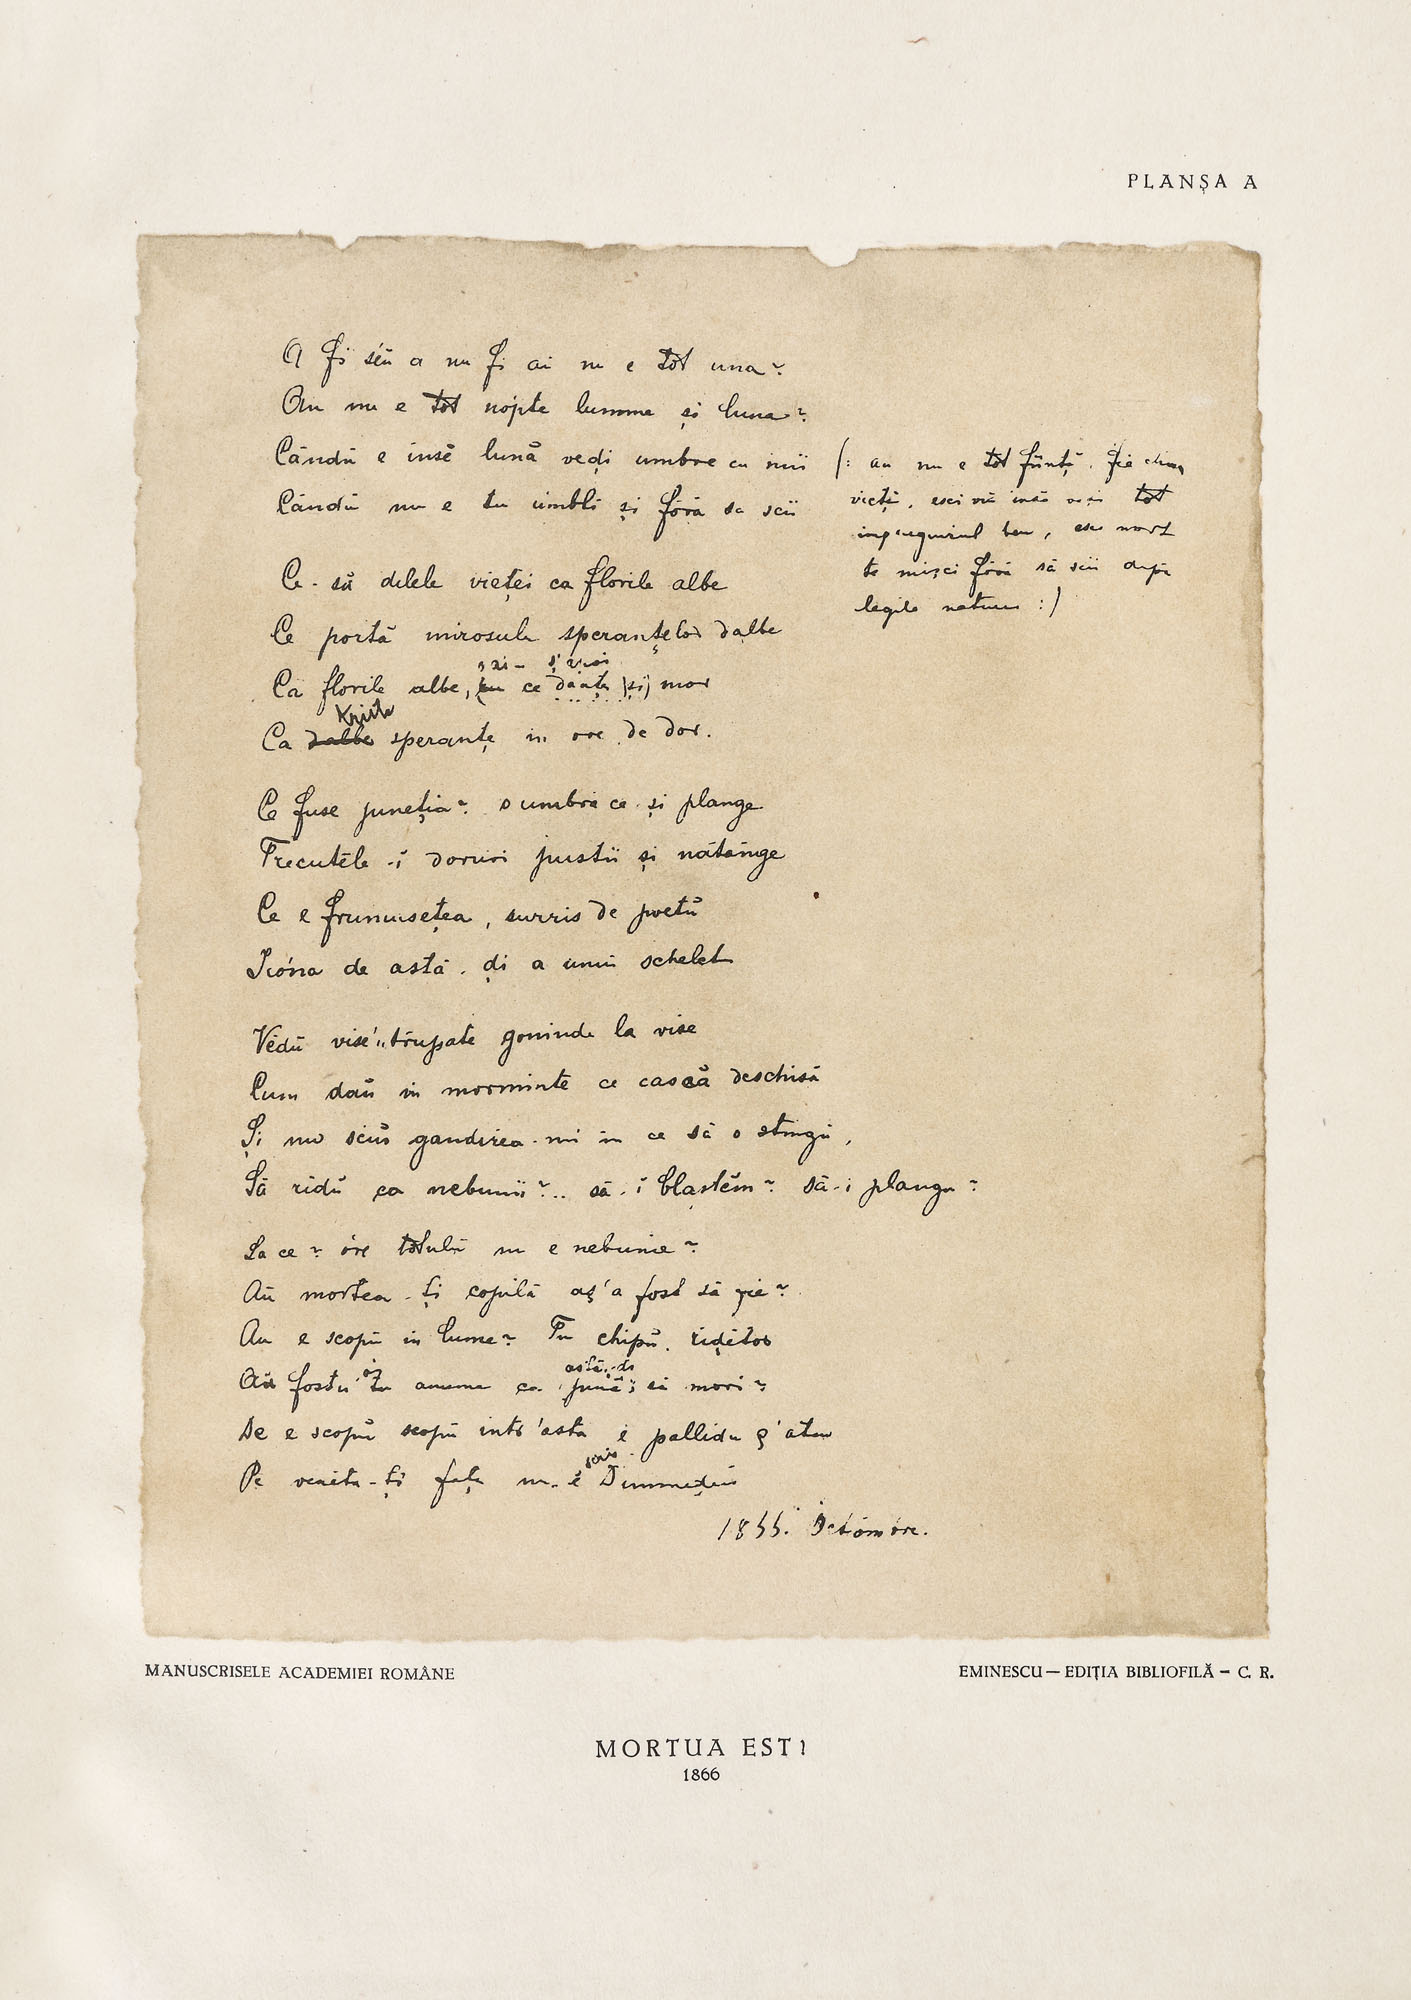 PLANȘA A
A fi séu a nu fi ai nu e tot una?
Au nu e tot nópte lumina și luna?
Cândŭ e insĕ lună vedi umbre cu mii
Cândŭ nu e tu umbli și fórá sa scii
(: au nu e tot ființă. fie
viéță, esci viu insĕ tot
esci mort
te misci fórá să scii dupá
legile naturei :)
Ce-sŭ dilele vieței ca florile albe
Ce portă mirosulu speranțelor dalbe
Ca florile albe, ce mor
Kriste
Ca dalbe speranțe in ore de dor.
Ce fuse junéția? o umbra ce-și plange
Trecutele-ĭ doruri pustii și nătânge
Ce e frumusețea, surris de poetŭ
Icóna de astă-di a unui scheletu
Vĕdŭ vise'ntrupate gonindu la vise
Cum daŭ in morminte ce cască deschisă
Și nu sciŭ gandirea-mi in ce să o stingŭ,
Să ridŭ ca nebunii?.. să-ĭ blastĕm? să-i plangu?
La ce? óre totulŭ nu e nebunie?
Aŭ mortea-ți copilă aș'a fost să fie?
Au e scopŭ in lume? Tu chipŭ ridĕtor
astă-di
Aŭ fostu óre tu anume ca jună să mori?
De e scopŭ scopŭ intr'asta e pallidu ș'ateu
scris
Pe vescita-ți față nu-ĕ Dumnedeŭ
1866. Octombre.
MANUSCRISELE ACADEMIEI ROMÂNE
EMINESCU — EDIȚIA BIBLIOFILĂ – C. R.
MORTUA EST!
1866